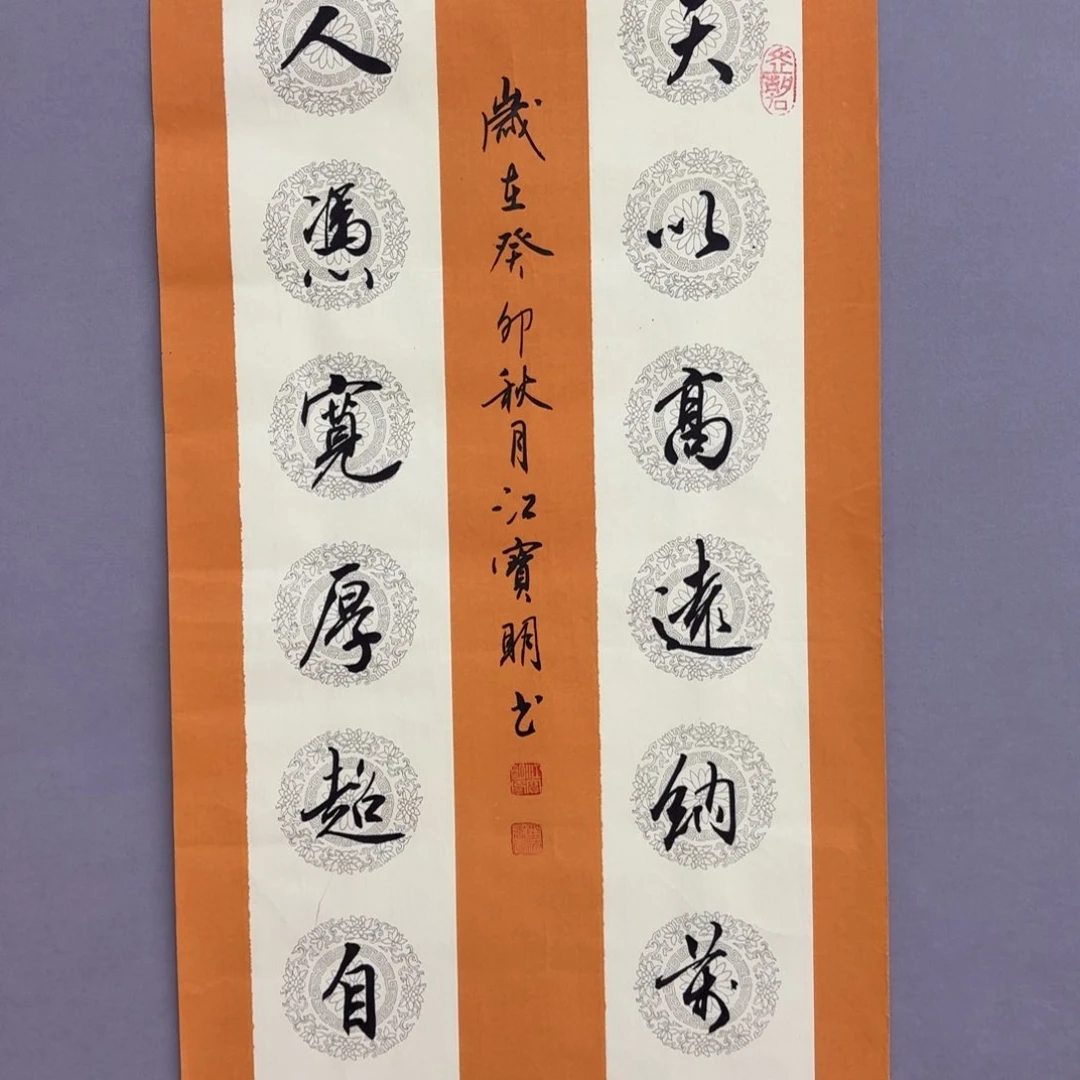 天以高遠納萬
歲在癸卯秋月江寶明书
人憑寬厚超自